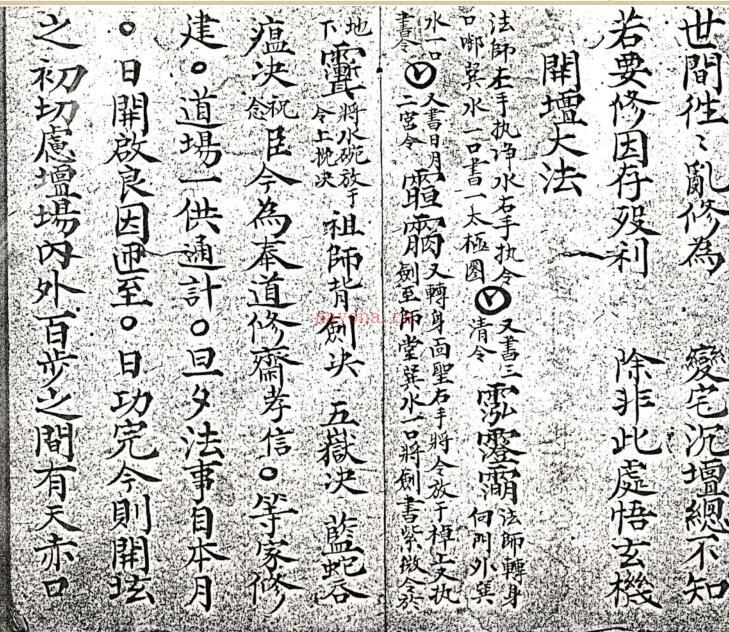 世間徃〻亂修為　變宅沉壇緫不知
若要修因存殁利　除非此處悟玄機
開壇大法
法師左手执净水右手执令
口啣㢲水一口書一太極圖
又書三
清令
法師轉身
向門外㢲
水一口
書令
又書日月
二宮令
又轉身面聖右手將令放于棹上又执
劍至師堂㢲水一口將劍書紫微令於
地
下
將水碗放于
令上
决
祖師背劍决　五嶽决　藍蛇
瘟决
祝
念
臣今為奉道修齋孝信○等家修
建○道場一供通計○旦夕法事自本月
○日開啟良因迊至○日功完今則開坛
之初切慮壇場內外百步之間有天赤口